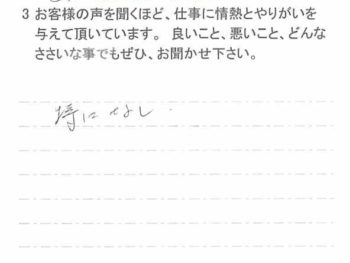 3 お客様の声を聞くほど、仕事に情熱とやりがいを
与えて頂いています。 良いこと、悪いこと、どんな
ささいな事でもぜひ、お聞かせ下さい。
特になし